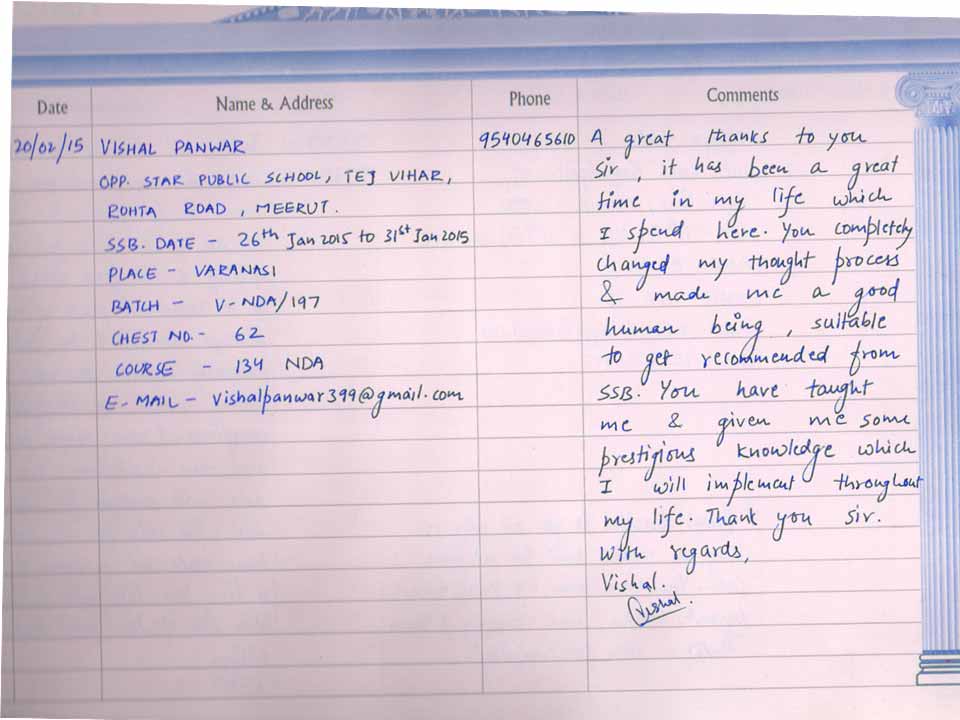 Date Name & Address Phone Comments
20/02/15 VISHAL PANWAR 9540465610 A great thanks to you
OPP. STAR PUBLIC SCHOOL, TEJ VIHAR, Sir, it has been a great
ROHTA ROAD, MEERUT. time in my life which
SSB. DATE - 26th Jan 2015 to 31st Jan 2015 I spend here. You completely
PLACE - VARANASI changed my thought process
BATCH - V-NDA/197 & made me a good
CHEST NO. - 62 human being, suitable
COURSE - 134 NDA to get recommended from
E-MAIL - vishalpanwar399@gmail.com SSB. You have taught
me & given me some
prestigious knowledge which
I will implement throughout
my life. Thank you Sir.
With regards,
Vishal.
Vishal.